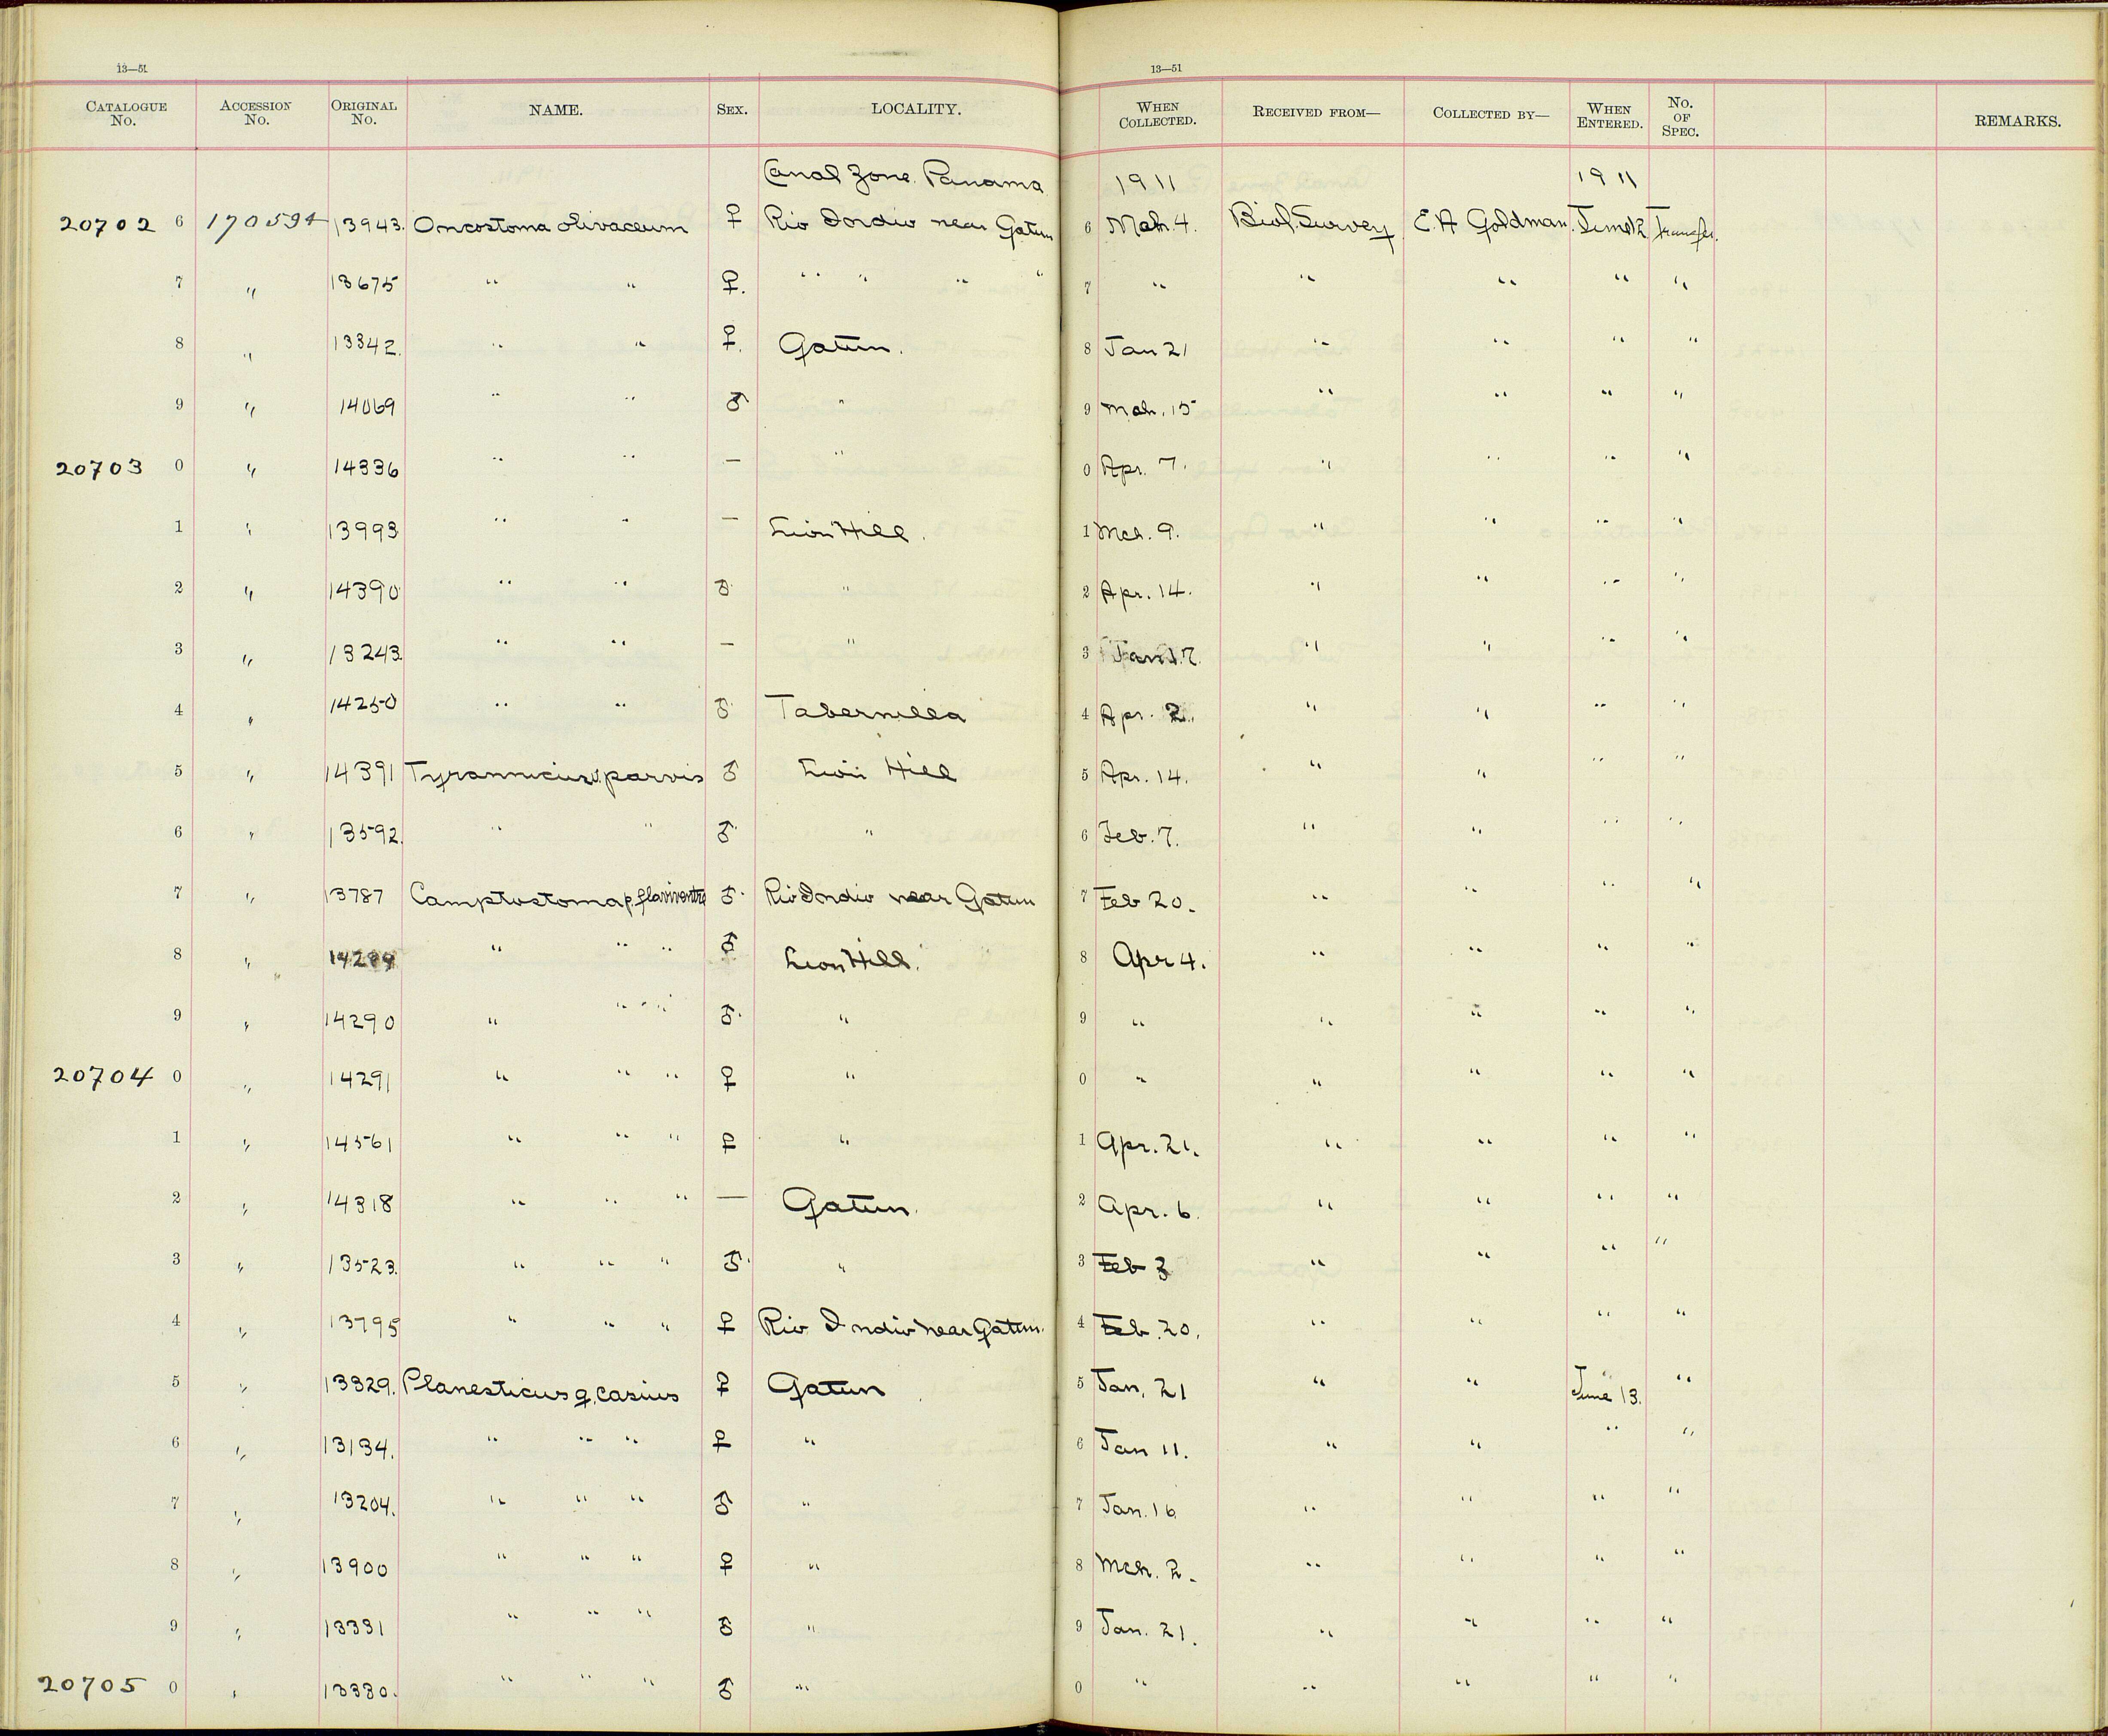 13—51 13—51
CATALOGUE No. ACCESSION No. ORIGINAL No. NAME. SEX. LOCALITY. WHEN COLLECTED. RECEIVED FROM— COLLECTED BY— WHEN ENTERED. No. OF SPEC. REMARKS.
Canal Zone. Panama 1911 1911
20702 6 170594 13943. Oncostoma olivaceum ♀ Rio Indio near Gatun 6 Mch. 4. Biol. Survey E. A Goldman. June 12 Transfer.
7 " 13675 " " ♀. " " " " 7 " " " " "
8 " 13342. " " ♀. Gatun. 8 Jan 21 " " " "
9 " 14069 " " ♂ " 9 Mch. 15 " " " "
20703 0 " 14336 " " — " 0 Apr. 7. " " " "
1 " 13993 " " — Lion Hill. 1 Mch. 9. " " " "
2 " 14390 " " ♂ " 2 Apr. 14. " " " "
3 " 13243. " " — " 3 Jan 17. " " " "
4 " 14250 " " ♂ Tabernilla 4 Apr. 2. " " " "
5 " 14391 Tyranniscus parvis ♂ Lion Hill 5 Apr. 14. " " " "
6 " 13592. " " ♂ " 6 Feb. 7. " " " "
7 " 13787 Camptostoma p. flaviventre ♂ Rio Indio near Gatun 7 Feb 20. " " " "
8 " " " " ♂ Lion Hill. 8 Apr 4. " " " "
9 " 14290 " " " ♂ " 9 " " " " "
20704 0 " 14291 " " " ♀ " 0 " " " " "
1 " 14561 " " " ♀ " 1 Apr. 21. " " " "
2 " 14318 " " " — Gatun. 2 Apr. 6. " " " "
3 " 13523. " " " ♂ " 3 Feb 3 " " " "
4 " 13795 " " " ♀ Rio Indio near Gatun. 4 Feb. 20. " " " "
5 " 13329. Planesticus g. casius ♀ Gatun 5 Jan. 21 " " June 13. "
6 " 13134. " " " ♀ " 6 Jan 11. " " " "
7 " 13204. " " " ♂ " 7 Jan. 16 " " " "
8 " 13900 " " " ♀ " 8 Mch. 2. " " " "
9 " 13331 " " " ♂ " 9 Jan. 21. " " " "
20705 0 " 13330. " " " ♂ " 0 " " " " "